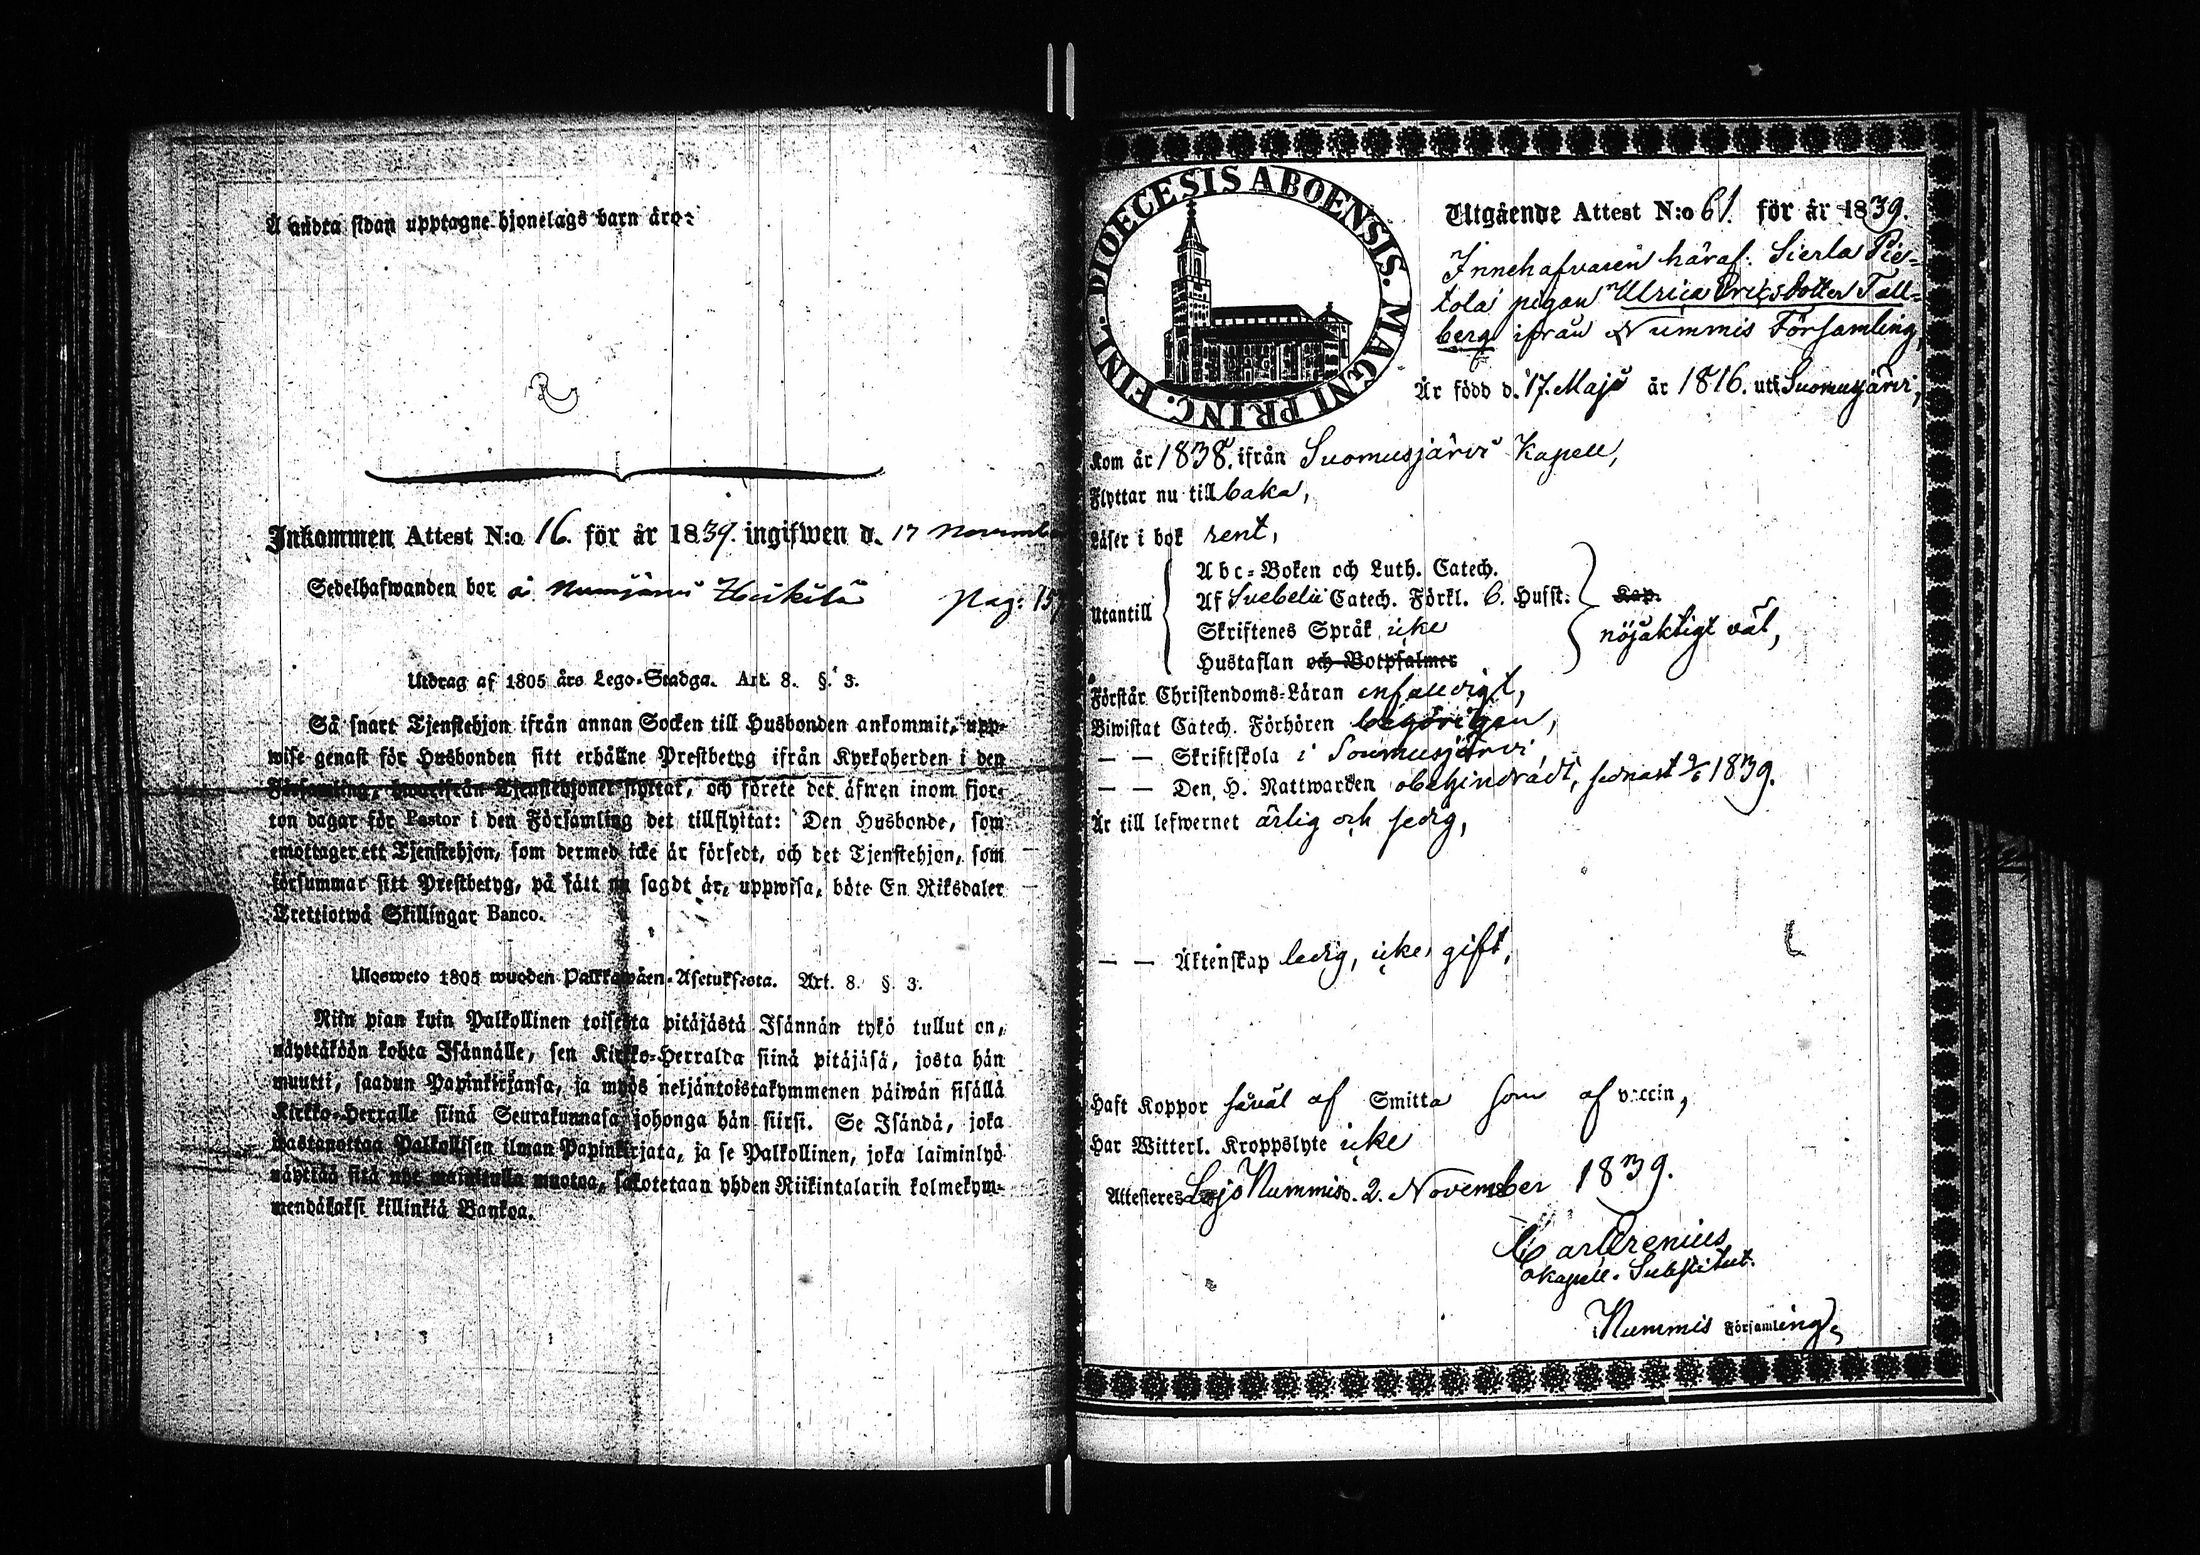 Å andra sidan upptagne hjonelags barn äro:
Inkommen Attest N:o 16. för år 1839. ingifwen d. 17 November
Sedelhafwanden bor å Pag: 15
Utdrag af 1805 års Lego-Stadga. Art. 8. §. 3.
Så snart Tjenstehjon ifrån annan Socken till Husbonden ankommit, upp-
wise genast för Husbonden sitt erhållne Prestbetyg ifrån Kyrkoherden i den
Församling, hwarifrån Tjenstehjonet flyttat, och förete det äfwen inom fjor-
ton dagar för Pastor i den Församling det tillflyttat: Den Husbonde, som
emottager ett Tjenstehjon, som dermed icke är försedt, och det Tjenstehjon, som
försummar sitt Prestbetyg, på sätt nu sagdt är, uppwisa, böte En Riksdaler
Trettiotwå Skillingar Banco.
Ulosweto 1805 wuoden Palkkawäen-Asetuksesta. Art. 8. §. 3.
Niin pian kuin Palkollinen toisesta pitäjästä Isännän tykö tullut on,
näyttäköön kohta Isännälle, sen Kirkko-Herralda siinä pitäjäsä, josta hän
muutti, saadun Papinkirjansa, ja myös neljäntoistakymmenen päiwän sisällä
Kirkko-Herralle siinä Seurakunnasa johonga hän siirsi. Se Isändä, joka
wastanottaa Palkollisen ilman Papinkirjata, ja se Palkollinen, joka laiminlyö
näyttää sitä nyt mainitulla muotoa, sakotetaan yhden Riikintalarin kolmekym-
mendäkaksi killinkiä Bankoa.
DIOECESIS ABOENSIS. MAGNI PRINC. FINL.
Utgående Attest N:o 61. för år 1839.
Innehafvaren häraf. Sierla Pie-
tola pigan Ulrica Ericsdotter Tall-
berg ifrån Nummis Församling,
Är född d. 17. Maji år 1816. uti Suomusjärvi,
Kom år 1838. ifrån Suomusjärvi Kapell,
Flyttar nu tillbaka,
Läser i bok rent,
Utantill
Abc-Boken och Luth. Catech.
Af Svebelii Catech. Förkl. 6. Husst. Kap.
Skriftenes Språk icke nöjaktigt väl,
Hustaflan och Botpsalmer
Förstår Christendoms-Läran enfaldigt,
Biwistat Catech. Förhören behörigen,
— — Skriftskola i Soumusjärvi
— — Den H. Nattwarden obehindradt, sednast 9/6 1839.
Är till lefwernet ärlig och sedig,
— — Äktenskap ledig, icke gift,
Haft Koppor såväl af Smitta som af vaccin,
Har Witterl. Kroppslyte icke
Attesteres Lojo Nummis d. 2. November 1839.
Carl Grenius
Kapell. Substitut.
i Nummis Församling,